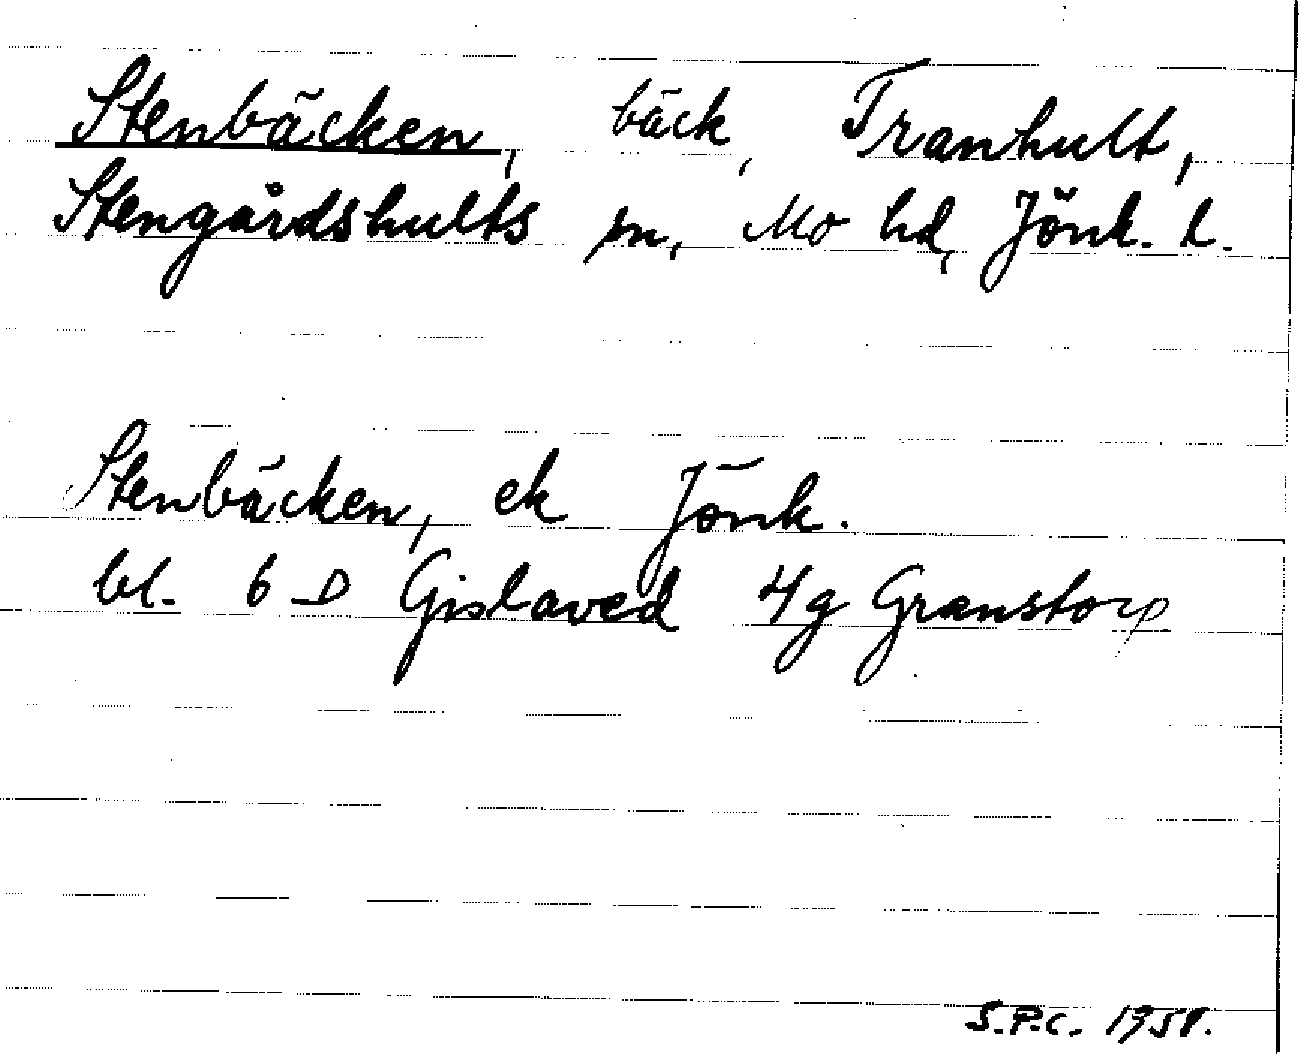 Stenbäcken, bäck, Tranhult,
Stengårdshults sn, Mo hd, Jönk. L.
Stenbäcken, ek Jönk.
bl. 6 D Gislaved 4g Granstorp
S.P.C. 1958.